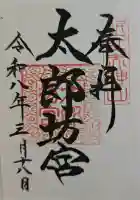 奉拝
太郎坊宮
令和八年三月六日